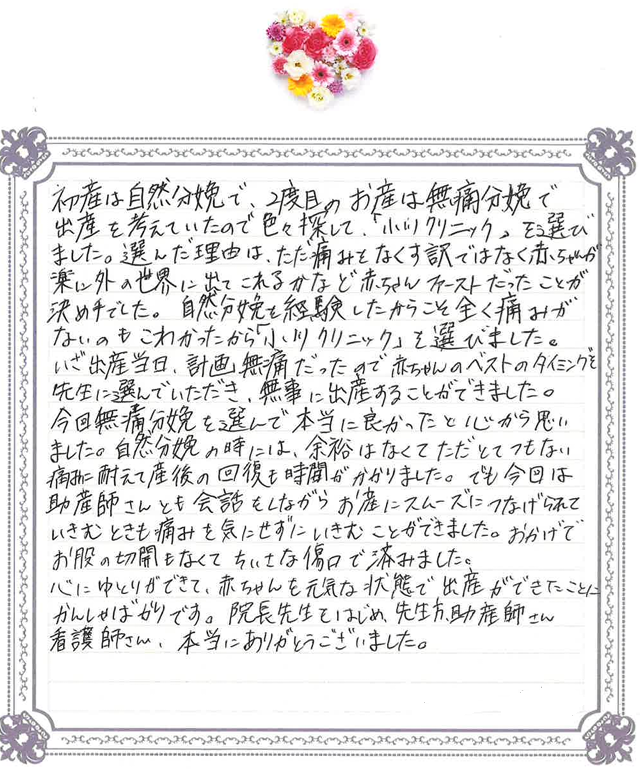 初産は自然分娩で、2度目のお産は無痛分娩で
出産を考えていたので色々探して、「小川クリニック」を選び
ました。選んだ理由は、ただ痛みをなくす訳ではなく赤ちゃんが
楽に外の世界に出てこれるかなど赤ちゃんファーストだったことが
決め手でした。自然分娩を経験したからこそ全く痛みが
ないのもこわかったから「小川クリニック」を選びました。
いざ出産当日、計画無痛だったので赤ちゃんのベストのタイミングを
先生に選んでいただき、無事に出産することができました。
今回無痛分娩を選んで本当に良かったと心から思い
ました。自然分娩の時には、余裕はなくてただとてつもない
痛みに耐えて産後の回復も時間がかかりました。でも今回は
助産師さんとも会話をしながらお産にスムーズにつなげられて
いきむときも痛みを気にせずにいきむことができました。おかげで
お股の切開もなくてちいさな傷口で済みました。
心にゆとりができて、赤ちゃんも元気な状態で出産ができたことに
かんしゃばかりです。院長先生をはじめ、先生方、助産師さん
看護師さん、本当にありがとうございました。